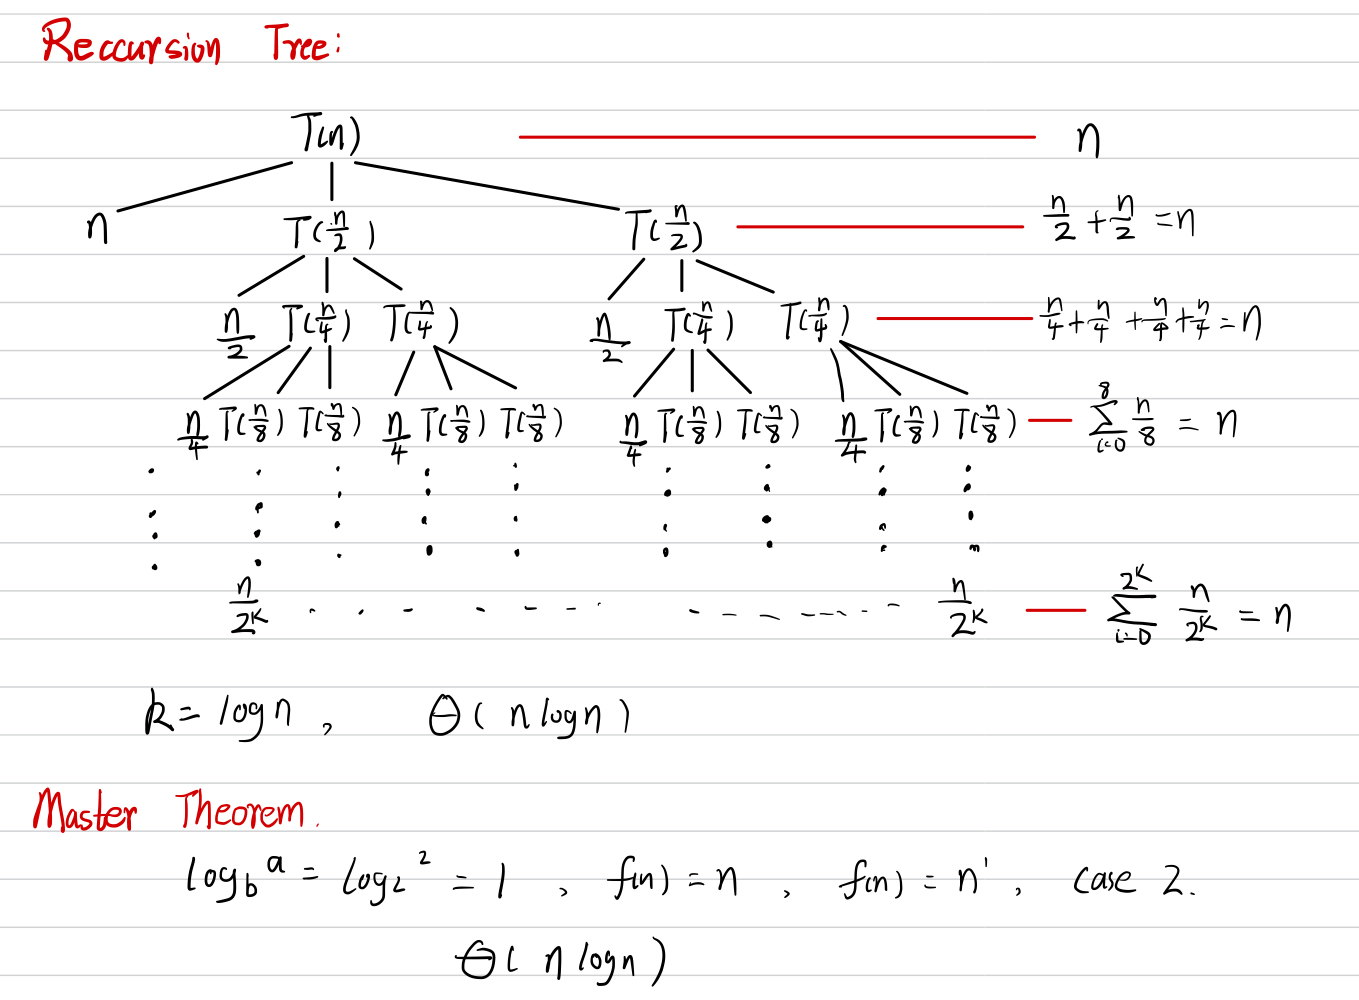 Reccursion Tree:
T(n) n
n T(n/2) T(n/2) n/2 + n/2 = n
n/2 T(n/4) T(n/4) n/2 T(n/4) T(n/4) n/4 + n/4 + n/4 + n/4 = n
n/4 T(n/8) T(n/8) n/4 T(n/8) T(n/8) n/4 T(n/8) T(n/8) n/4 T(n/8) T(n/8) ∑_{i=0}^{8} n/8 = n
n/2^k n/2^k ∑_{i=0}^{2^k} n/2^k = n
k = log n , Θ( n log n )
Master Theorem.
log_b a = log_2 2 = 1 , f(n) = n , f(n) = n^1 , case 2.
Θ( n log n )